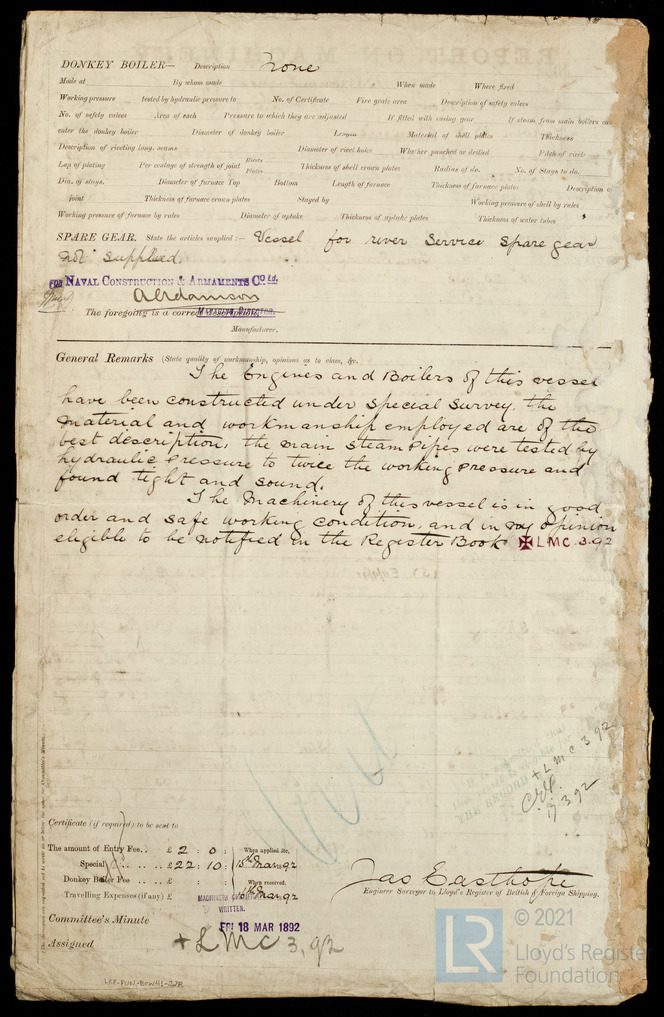 DONKEY BOILER— Description None
Made at By whom made When made Where fixed
Working pressure tested by hydraulic pressure to No. of Certificate Fire grate area Description of safety valves
No. of safety valves Area of each Pressure to which they are adjusted If fitted with easing gear If steam from main boilers can
enter the donkey boiler Diameter of donkey boiler Length Material of shell plates Thickness
Description of riveting long. seams Diameter of rivet holes Whether punched or drilled Pitch of rivets
Lap of plating Per centage of strength of joint Rivets Plates Thickness of shell crown plates Radius of do. No. of Stays to do.
Dia. of stays. Diameter of furnace Top Bottom Length of furnace Thickness of furnace plates Description of
joint Thickness of furnace crown plates Stayed by Working pressure of shell by rules
Working pressure of furnace by rules Diameter of uptake Thickness of uptake plates Thickness of water tubes
SPARE GEAR. State the articles supplied:— Vessel for river service spare gear
not supplied.
FOR NAVAL CONSTRUCTION & ARMAMENTS CO Ld.
A Adamson
The foregoing is a correct description,
MANAGING DIRECTOR,
Manufacturer.
General Remarks (State quality of workmanship, opinions as to class, &c.
The Engines and Boilers of this vessel
have been constructed under special survey. the
material and workmanship employed are of the
best description, the main steam Pipes were tested by
hydraulic Pressure to twice the working pressure and
found tight and sound.
The Machinery of this vessel is in good
order and safe working condition, and in my opinion
eligible to be notified in the Register Book ✠ LMC 3.92
THE RECORD + LMC 3 92
17 3 92
Certificate (if required) to be sent to
The amount of Entry Fee.. £ 2 : 0 : When applied for,
Special .. .. .. £ 22 : 10 : 15th Mar 92
Donkey Boiler Fee .. .. £ : : When received,
Travelling Expenses (if any) £ 16th Mar 92
Jas Easthope
Engineer Surveyor to Lloyd's Register of British & Foreign Shipping.
MACHINERY CERTIFICATE
WRITTEN.
Committee's Minute FRI 18 MAR 1892
Assigned + LMC 3,92
LRF-PUN-BOW41-
LR © 2021
Lloyd's Register
Foundation